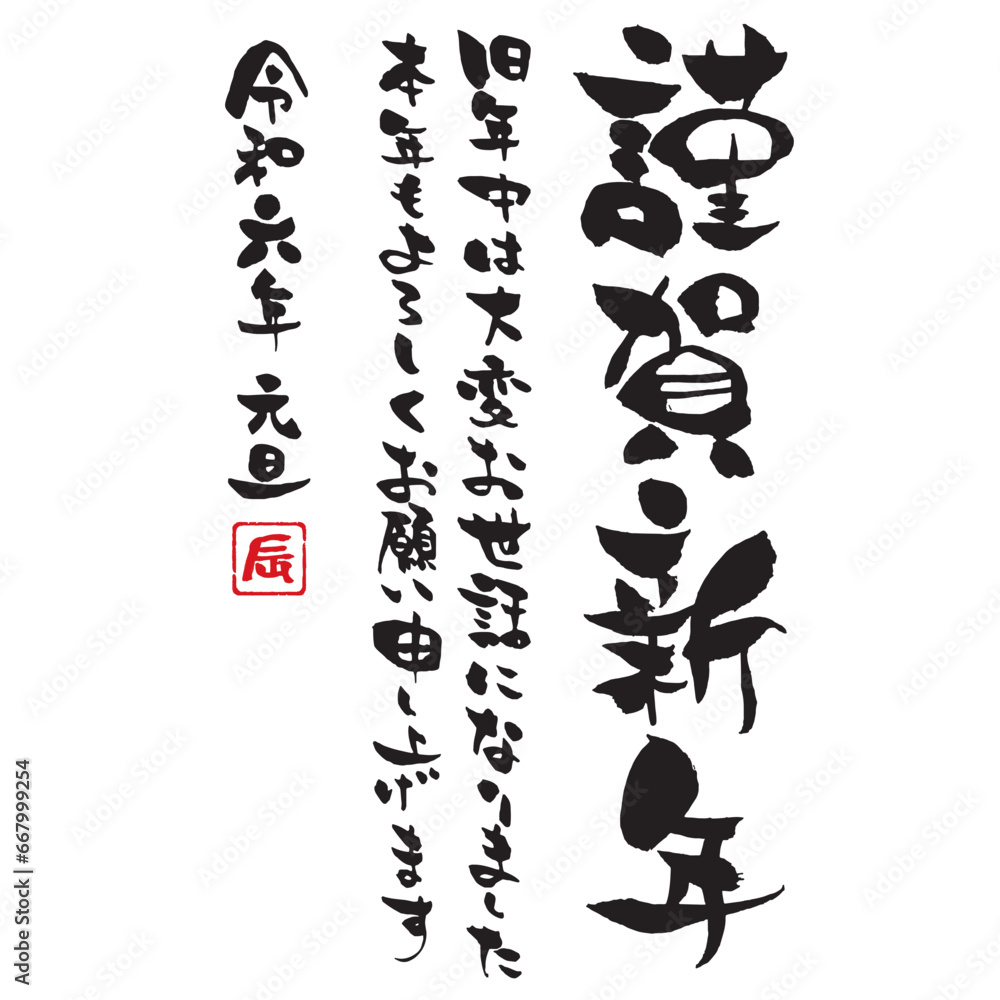 謹賀新年
旧年中は大変お世話になりました
本年もよろしくお願い申し上げます
令和六年 元旦
辰
Adobe Stock | #667999254